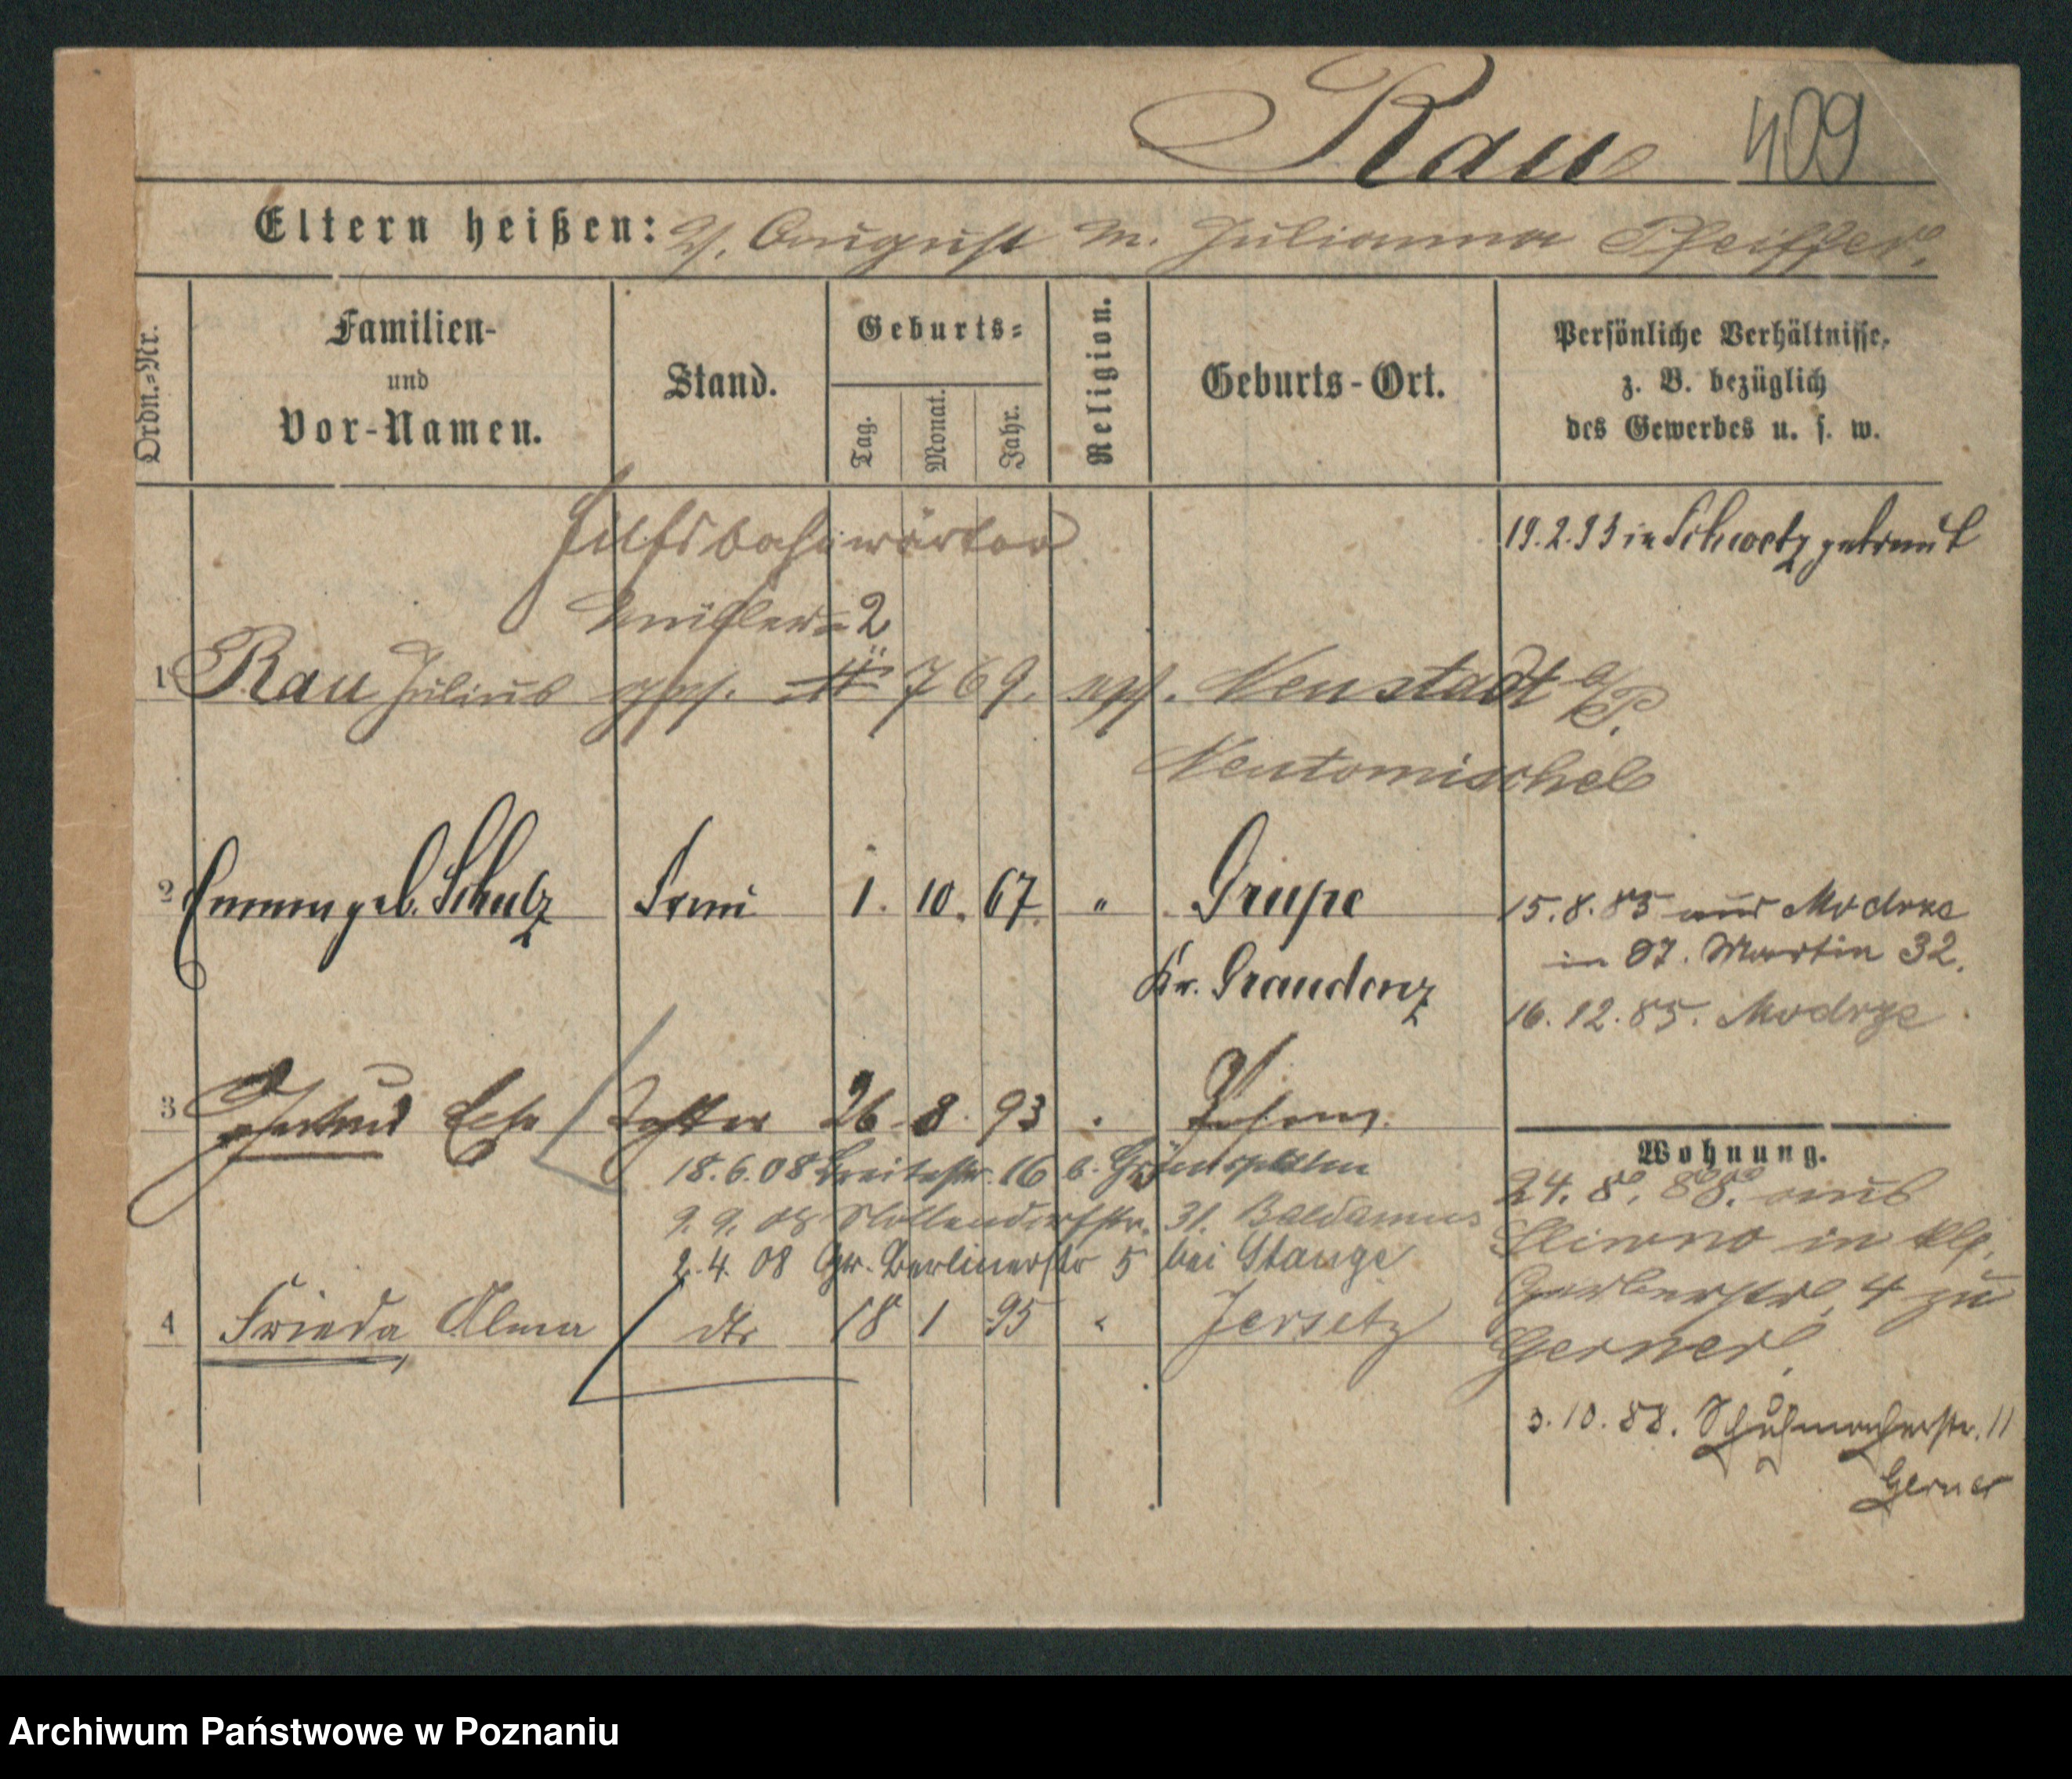 Rau 409
Eltern heißen: V. August M. Julianna Pfeiffer.
Ordn.-Nr.
Familien-
und
Vor-Namen.
Stand.
Geburts-
Tag. Monat. Jahr.
Religion.
Geburts-Ort.
Persönliche Verhältnisse,
z. B. bezüglich
des Gewerbes u. s. w.
Hilfsbahnwärter
19.2.93 in Schwetz getraut
Müller 2
1 Rau Julius 7 69. Neustadt a/P.
Neutomischel
2 Emma geb. Schulz Frau 1. 10. 67. " Grupe
Kr. Graudenz
15.8.85 aus Modrze
in St. Martin 32.
16.12.85. Modrze
3 Gertrud Tochter 26 8. 93 Posen
18.6.08 Breitestr. 16 b.
9.9.08 Hollendorfstr. 31.
2.4.08 Gr. Berlinerstr 5 bei Stange
4 Frieda Alma dto 18 1 95 " Jersitz
Wohnung.
24. 8. 88. aus
Sliwno in kl.
Gerberstr. 4 zu
Gerner.
3.10.88. Schuhmacherstr. 11
Gerner
Archiwum Państwowe w Poznaniu